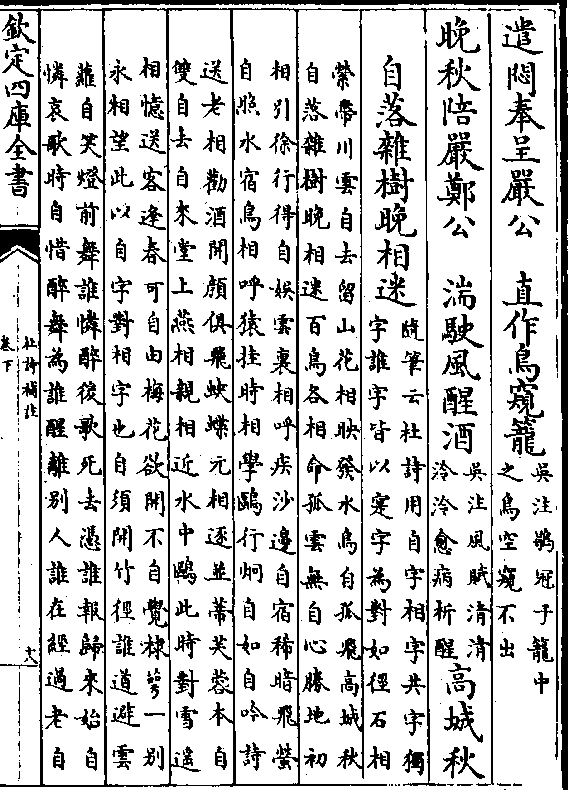 遣悶奉呈嚴公　直作鳥窺籠吳注鶡冠子籠中
之鳥空窺不出
晚秋陪嚴鄭公　湍駛風醒酒吳注風賦清清
泠泠愈病析酲高城秋
自落雜樹晚相迷隨筆云杜詩用自字相字共字獨
字誰字皆以寔字為對如徑石相
縈帶川雲自去留山花相映發水鳥自孤飛高城秋
自落雜樹晚相迷百鳥各相命孤雲無自心勝地初
相引徐行得自娛雲裏相呼疾沙邊自宿稀暗飛螢
自照水宿鳥相呼猿挂時相學鷗行炯自如自吟詩
送老相勸酒開顔俱飛蛺蝶元相逐並蒂芙蓉本自
雙自去自來堂上燕相親相近水中鷗此時對雪遥
相憶送客逢春可自由梅花欲開不自覺棣萼一別
永相望此以自字對相字也自須開竹徑誰道避雲
蘿自笑燈前舞誰憐醉後歌死去憑誰報歸來始自
憐哀歌時自惜醉舞為誰醒離別人誰在經過老自
欽定四庫全書
杜詩補注
卷下
十八